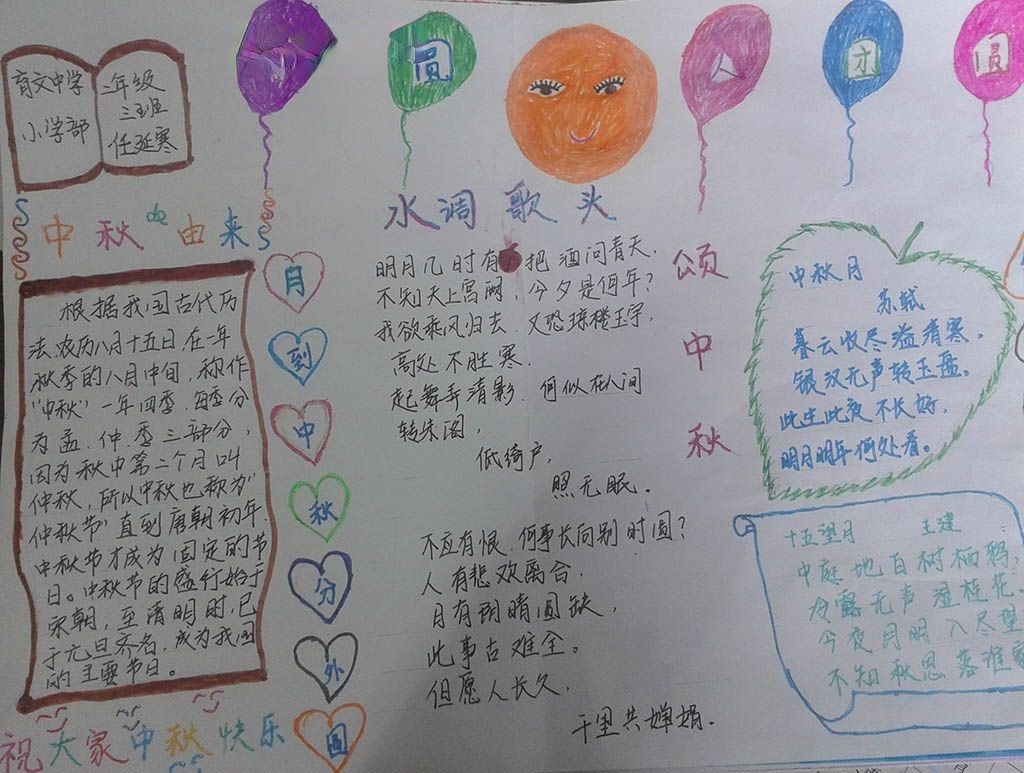 育文中学
小学部
二年级
三班
任延寒
员
人
团
圆
中秋的由来
根据我国古代历
法,农历八月十五日,在一年
秋季的八月中旬,称作
"中秋"一年四季,每季分
为孟、仲、季三部分,
因为秋中第二个月叫
仲秋,所以中秋也称为"
仲秋节"直到唐朝初年,
中秋节才成为固定的节
日。中秋节的盛行始于
宋朝,至清明时,已
于元旦齐名,成为我国
的主要节日。
月
到
中
秋
分
外
圆
祝大家中秋快乐
水调歌头
明月几时有,把酒问青天,
不知天上宫阙,今夕是何年?
我欲乘风归去,又恐琼楼玉宇,
高处不胜寒.
起舞弄清影,何似在人间
转朱阁,
低绮户,
照无眠。
不应有恨,何事长向别时圆?
人有悲欢离合,
月有阴晴圆缺,
此事古难全。
但愿人长久,
千里共婵娟.
颂
中
秋
中秋月
苏轼
暮云收尽溢清寒,
银汉无声转玉盘。
此生此夜不长好,
明月明年何处看。
十五望月 王建
中庭地白树栖鸦,
冷露无声湿桂花.
今夜月明人尽望
不知秋思落谁家